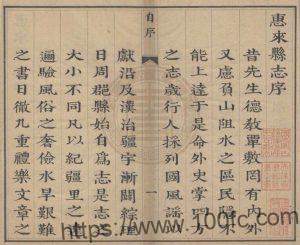 惠來縣志序
昔先生德教單敷罔有內外
又慮負山阻水之區民隱不
能上達于是命外史掌四方
之志歲行人採列國風謠
獻沿及漢治疆宇漸闊綜理
日周郡縣始自爲志是志也
大小不同凡以紀疆里之
遍驗風俗之奢儉水旱艱難
之書日徹九重禮樂文章之
自序
一
https://www.100fc.com